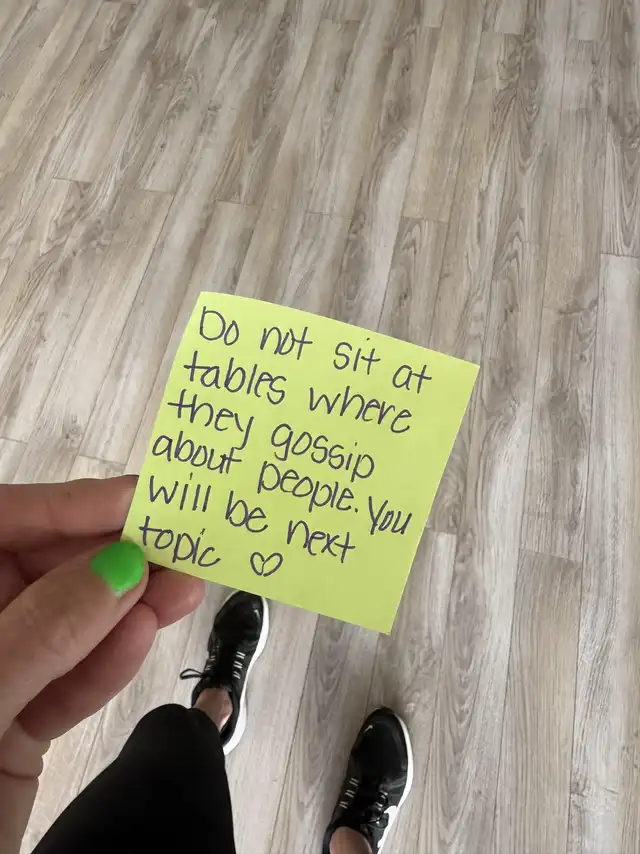 Do not sit at
tables where
they gossip
about people. You
will be next
topic ♡